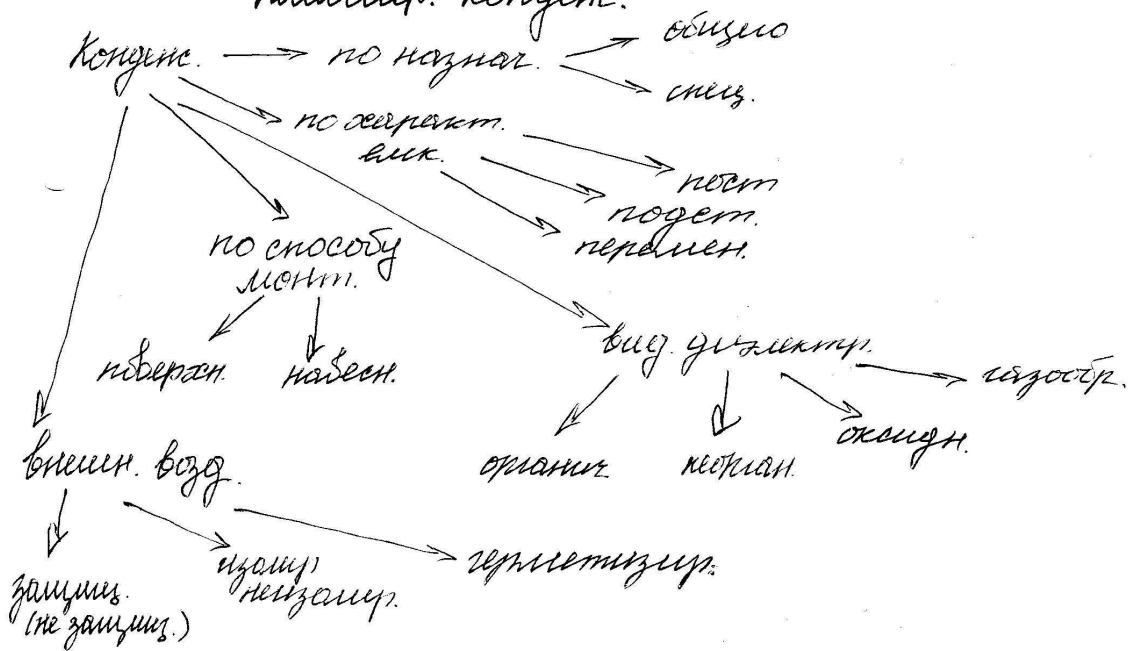 конденс.
Конденс. по назнач. общего
спец.
по характ.
емк.
пост
подст.
перемен.
по способу
монт.
поверхн. навесн.
вид. диэлектр.
газообр.
оксидн.
органич неорган.
внешн. возд.
изолир
неизолир.
герметизир.
защищ.
(не защищ.)